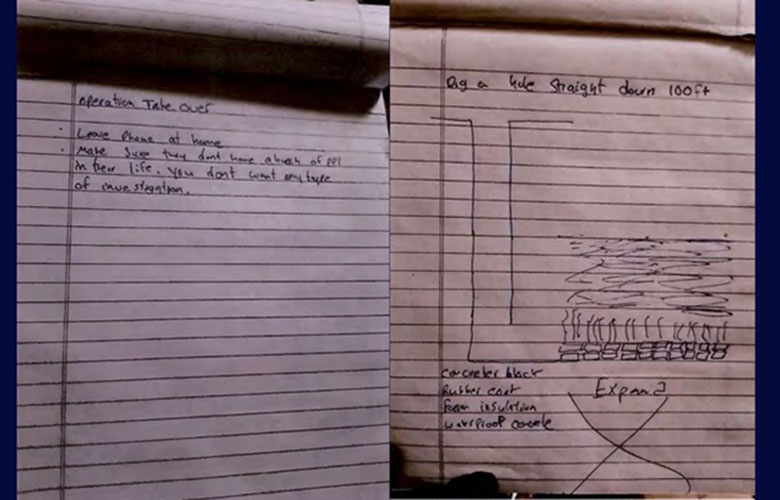 Operation Take Over
· Leave Phone at home
· Make Sure they dont have a bunch of ppl
in their life. You dont want any type
of investigation.
Dig a hole straight down 100ft
block
Rubber coat
foam insulation
Expand